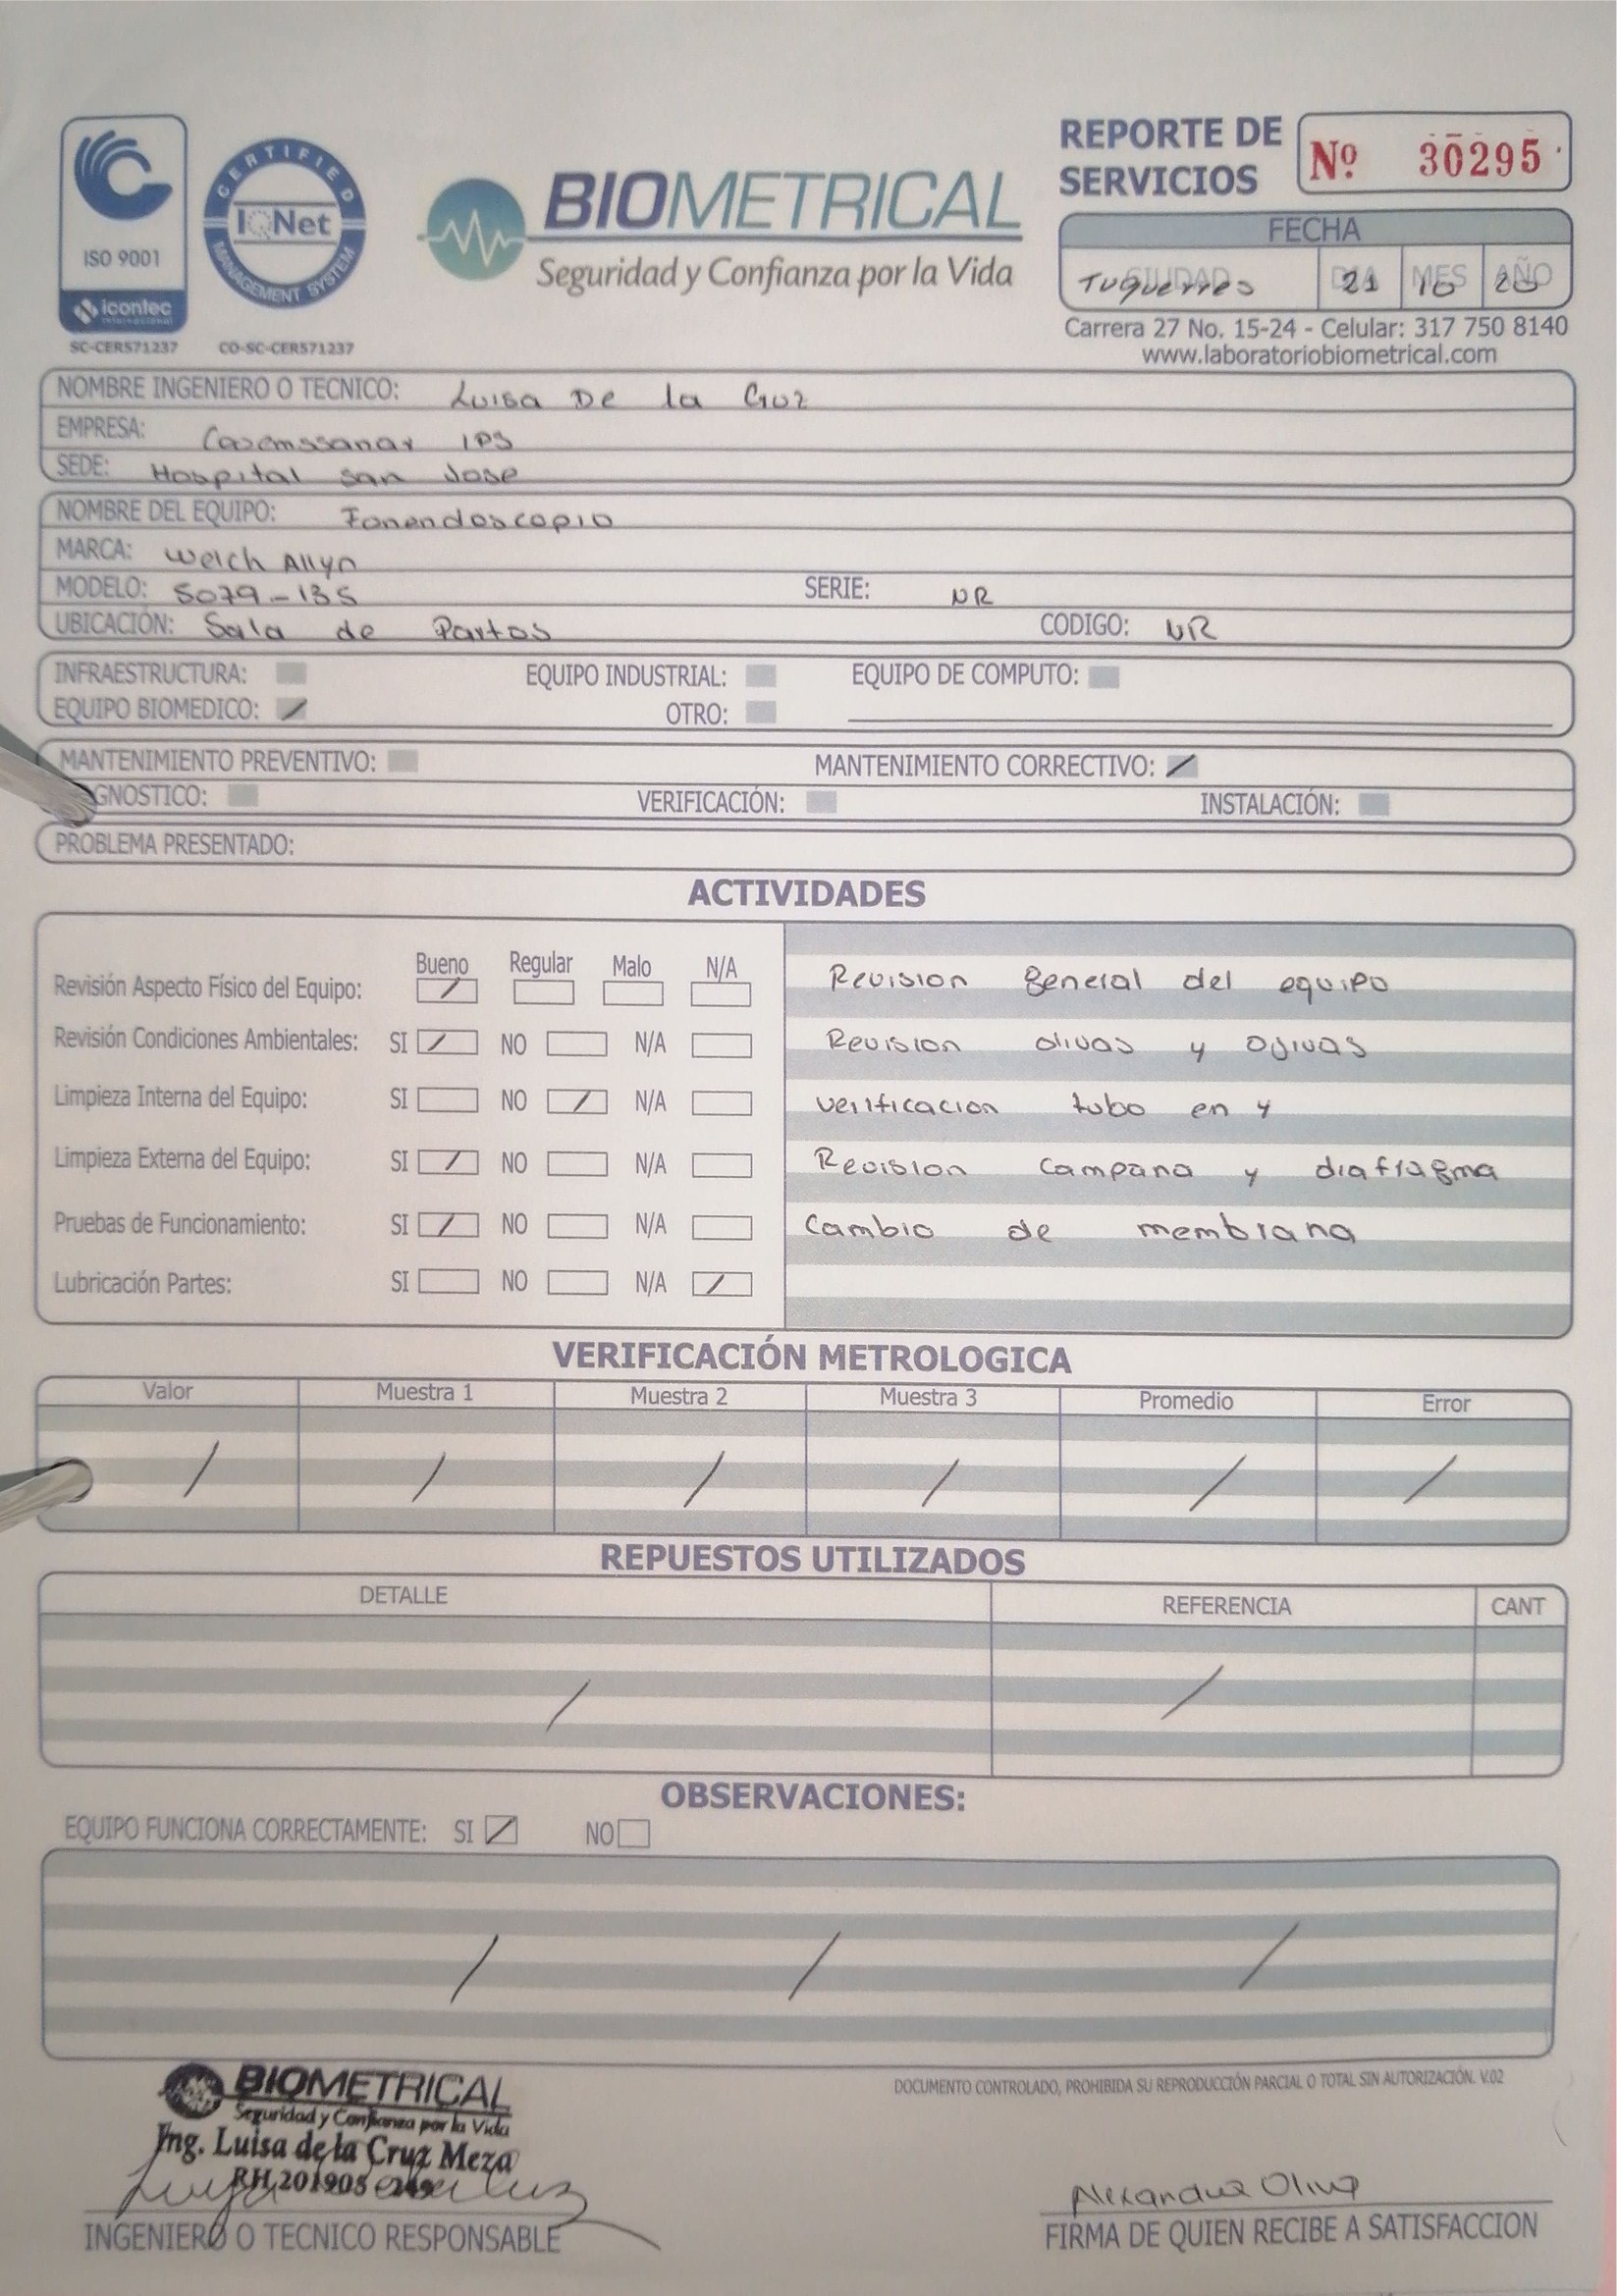 ISO 9001
icontec
internacional
SC-CER571237
CERTIFIED
IQNet
MANAGEMENT SYSTEM
CO-SC-CER571237
BIOMETRICAL
Seguridad y Confianza por la Vida
REPORTE DE
SERVICIOS
Nº 30295
FECHA
CIUDAD DIA MES AÑO
Tuquerres 21 10 20
Carrera 27 No. 15-24 - Celular: 317 750 8140
www.laboratoriobiometrical.com
NOMBRE INGENIERO O TECNICO: Luisa De la Cruz
EMPRESA: IPS
SEDE: Hospital San Jose
NOMBRE DEL EQUIPO: Fonendoscopio
MARCA: Welch Allyn
MODELO: 5079-135 SERIE: NR
UBICACIÓN: Sala de Partos CODIGO: NR
INFRAESTRUCTURA: EQUIPO INDUSTRIAL: EQUIPO DE COMPUTO:
EQUIPO BIOMEDICO: / OTRO:
MANTENIMIENTO PREVENTIVO: MANTENIMIENTO CORRECTIVO: /
GNOSTICO: VERIFICACIÓN: INSTALACIÓN:
PROBLEMA PRESENTADO:
ACTIVIDADES
Bueno Regular Malo N/A
Revisión Aspecto Físico del Equipo: /
Revisión Condiciones Ambientales: SI / NO N/A
Limpieza Interna del Equipo: SI NO / N/A
Limpieza Externa del Equipo: SI / NO N/A
Pruebas de Funcionamiento: SI / NO N/A
Lubricación Partes: SI NO N/A /
Revision general del equipo
Revision olivas y ojivas
verificacion tubo en y
Revision campana y diafragma
Cambio de membrana
VERIFICACIÓN METROLOGICA
Valor Muestra 1 Muestra 2 Muestra 3 Promedio Error
/ / / / / /
REPUESTOS UTILIZADOS
DETALLE REFERENCIA CANT
/ /
OBSERVACIONES:
EQUIPO FUNCIONA CORRECTAMENTE: SI / NO
/ / /
BIOMETRICAL
Seguridad y Confianza por la Vida
Ing. Luisa de la Cruz Meza
INGENIERO O TECNICO RESPONSABLE
DOCUMENTO CONTROLADO, PROHIBIDA SU REPRODUCCIÓN PARCIAL O TOTAL SIN AUTORIZACIÓN. V.02
Alexandra Oliva
FIRMA DE QUIEN RECIBE A SATISFACCION